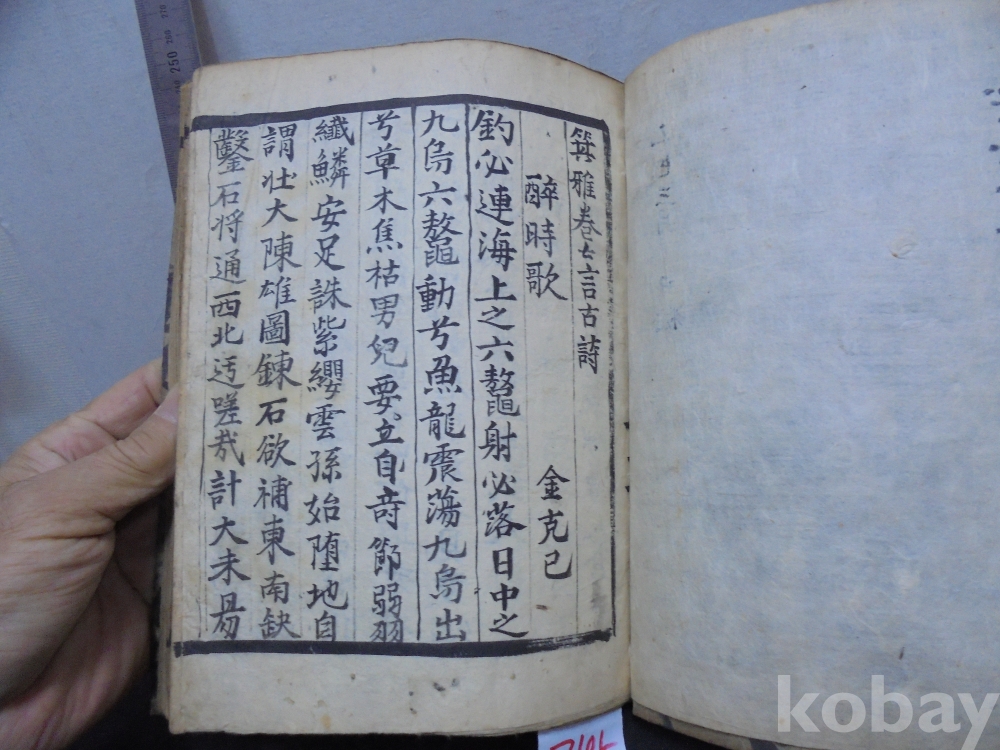 箕雅卷七言古詩
醉時歌 金克己
釣必連海上之六鼇射必落日中之
九烏六鼇動兮魚龍震蕩九烏出
兮草木焦枯男兒要立自奇節弱羽
纖鱗安足誅紫纓雲孫始堕地自
謂壮大陳雄圖鍊石欲補東南缺
鑿石将通西北迃嗟哉計大未易
250
kobay